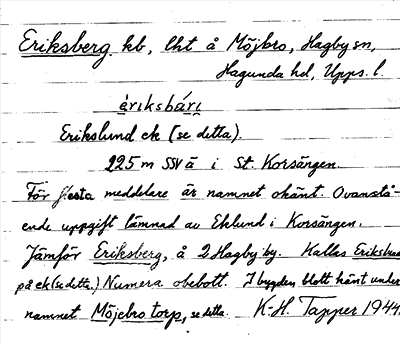 Eriksberg kb, lht å Möjbro, Hagby sn,
Hagunda hd, Upps. l.
èriksbárı̣
Erikslund ek (se detta).
225 m SSV ä i St. Korsängen.
För flesta meddelare är namnet okänt. Ovanstå-
ende uppgift lämnad av Eklund i Korsängen.
Jämför Eriksberg, å 2 Hagby by. Kallas Erikslund
på ek (se detta.) Numera obebott. I bygden blott känt under
namnet Möjebro torp, se detta. K-H. Tapper 1944.